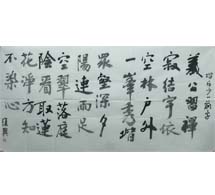 四句少一前字
義公習禪
寂結宇依
空林戶外
一峯秀堦
眾壑深夕
陽連雨足
空翠落庭
陰看取蓮
花淨方知
不染心